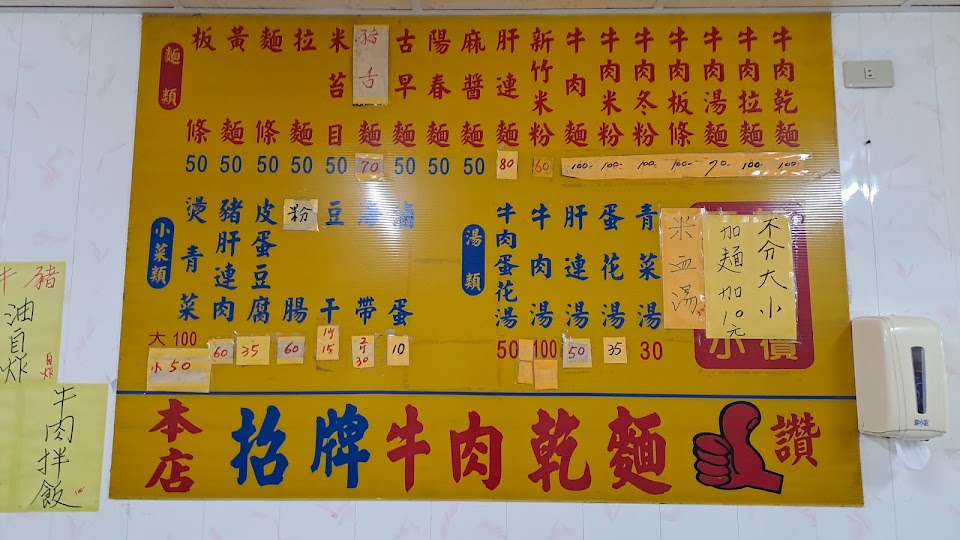 麵類
板條 50
黃麵 50
麵條 50
拉麵 50
米苔目 50
豬舌麵 70
古早麵 50
陽春麵 50
麻醬麵 50
肝連麵 80
新竹米粉 60
牛肉麵 100-
牛肉米粉 100-
牛肉冬粉 100-
牛肉板條 100-
牛肉湯麵 70-
牛肉拉麵 100-
牛肉乾麵 100-
小菜類
燙青菜 大100 小50
豬肝連肉 60
皮蛋豆腐 35
粉腸 60
豆干 15
海帶 30
滷蛋 10
湯類
牛肉蛋花湯 50
牛肉湯 100
肝連湯 50
蛋花湯 35
青菜湯 30
米血湯
不分大小
加麵加10元
本店
招牌牛肉乾麵
讚
牛豬
油自炸
自炸
牛肉拌飯